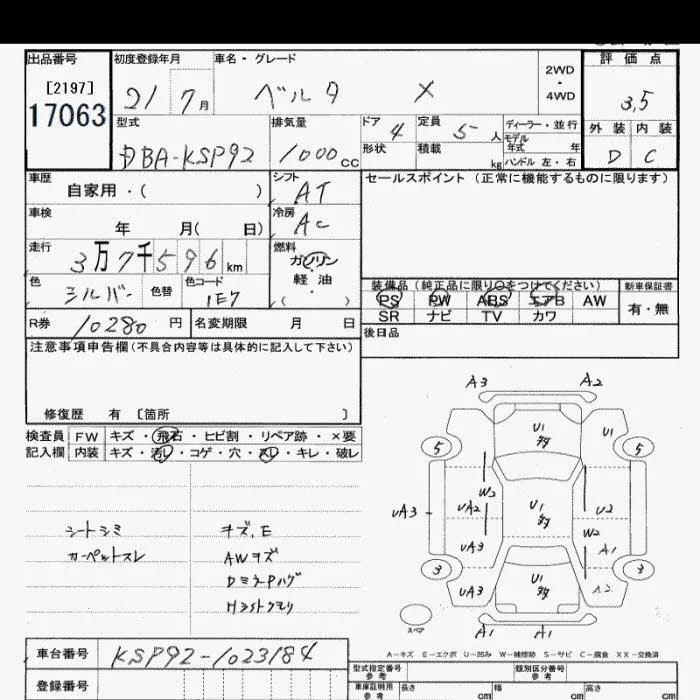 出品番号 初度登録年月 車名・グレード 2WD・4WD 評価点
[2197]
17063
21 7月 ベルタ X 3.5
型式 排気量 ドア 4 定員 5人 ディーラー・並行 外装 内装
DBA-KSP92 1000cc 形状 積載 kg モデル年式 年 ハンドル 左・右 D C
車歴 シフト セールスポイント(正常に機能するものに限ります)
自家用・( ) AT
車検 冷房
年 月( 日) AC
走行 燃料
3万7千596km ガソリン・軽油・( )
色 シルバー 色替 色コード 1E7
装備品(純正品に限り○をつけてください) 新車保証書
PS PW ABS エアB AW 有・無
SR ナビ TV カワ
R券 10280円 名変期限 月 日
後日品
注意事項申告欄(不具合内容等は具体的に記入して下さい)
修復歴 有 [箇所 ]
検査員 FW キズ・飛石・ヒビ割・リペア跡・×要
記入欄 内装 キズ・汚レ・コゲ・穴・スレ・キレ・破レ
シートシミ キズ.E
カーペットスレ AWキズ
DミラーPハゲ
Hライトクモリ
A3 A2
U1 U1
5 5
W2
UA3 UA2 U1 U2
W2
UA3 A1
3 3
UA3 U1 A2
スペア A1 A1
A-キズ E-エクボ U-凹み W-補修跡 S-サビ C-腐食 XX-交換済
車台番号 KSP92-1023184
登録番号
型式指定番号 参考 類別区分番号 参考
車庫証明用 参考 長さ cm 幅 cm 高さ cm